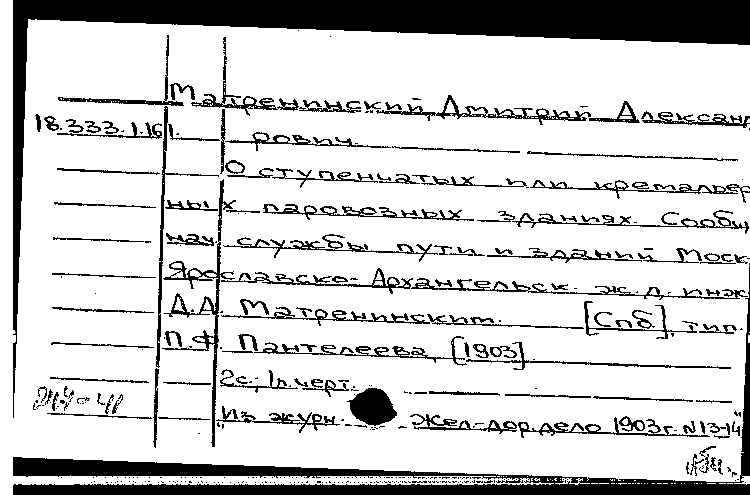 Матренинский, Дмитрий Александ
18.333.1.161. рович.
О ступенчатых или кремальер
ных паровозных зданиях. Сообщ.
нач. службы пути и зданий Моск.
Ярославско-Архангельск. ж.д. инж.
Д.А. Матренинским. [Спб], тип.
П.Ф. Пантелеева, [1903].
2с.; 1л.черт.
244-41
"Из журн. Жел-дор.дело 1903г. N13-14"